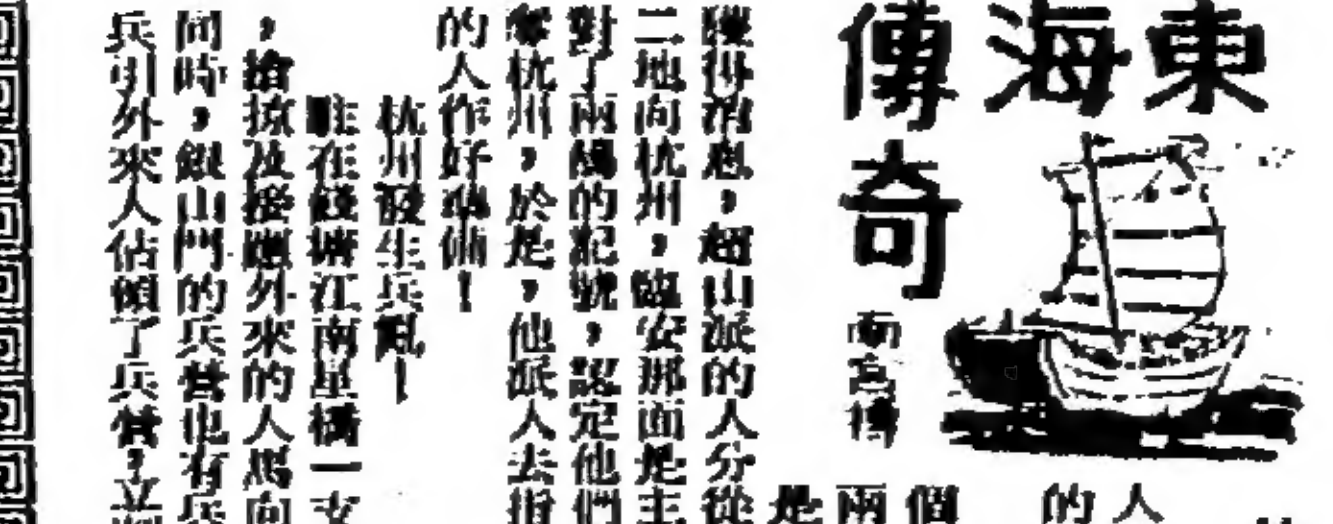 東海傳奇
南宮搏
人
的
個
兩
是
獲得消息，超山派的人分從
二地向杭州，臨安那面是主
對了兩的記號，認定他們
奪杭州，於是，他派人去指
的人作好準備！
杭州發生兵亂！
駐在錢塘江南星橋一支
，搶掠及接應外來的人馬向
同時，銀山門的兵營也有兵
兵引外來人佔領了兵營，立